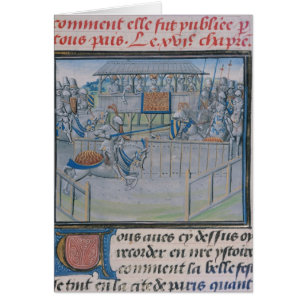 comment elle fut publiee p
tous pais. Le .xvi.e chapre.
Tous aues cy dessus oy
recorder en nre ystoire
comment la belle fes
se tint en la cite de paris quant